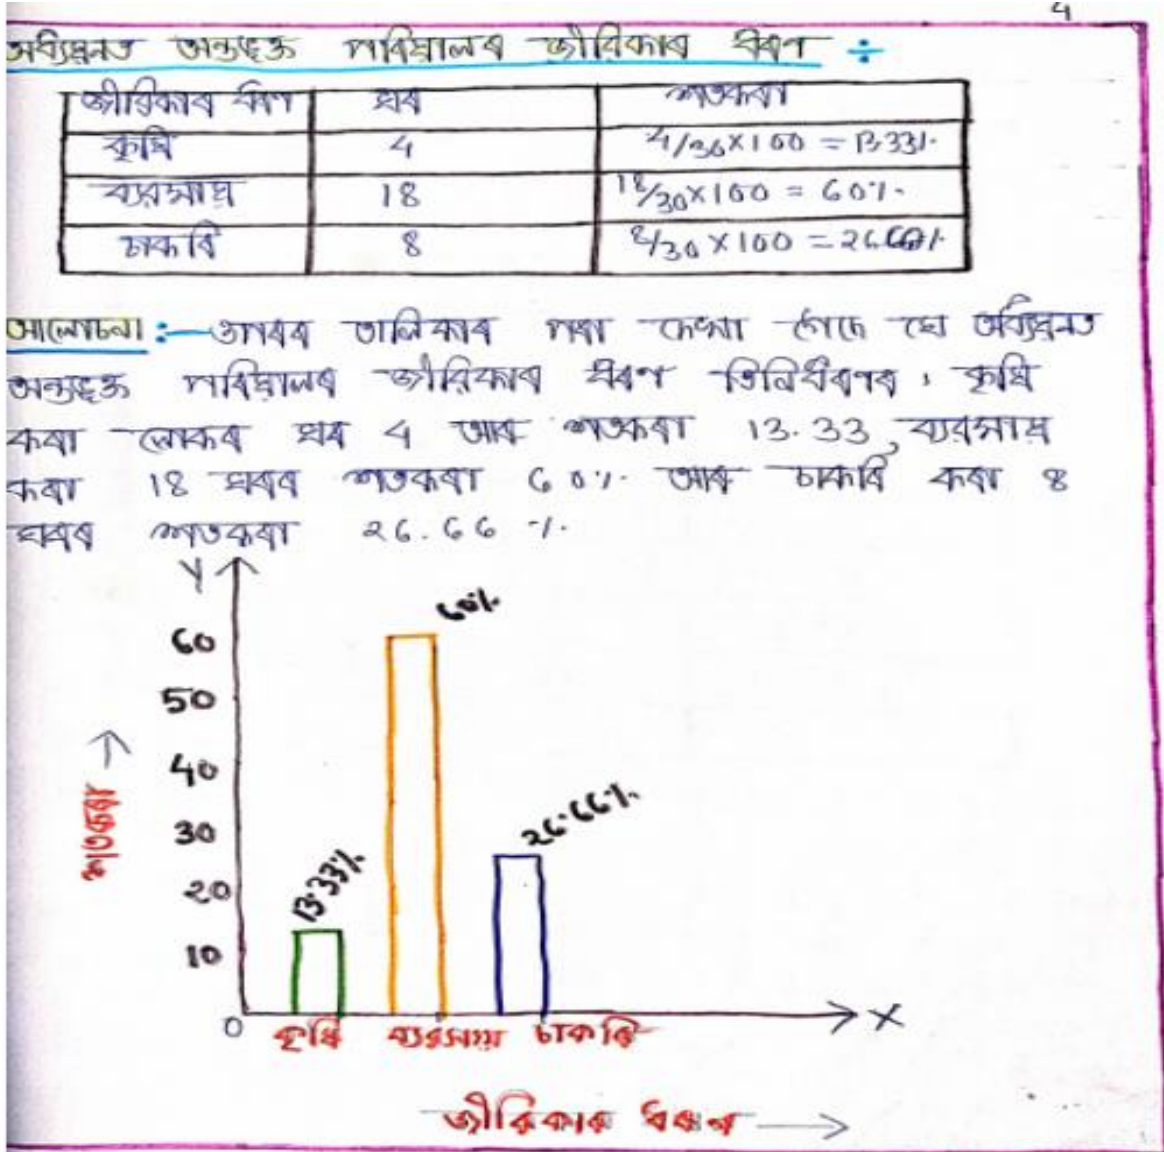 4
অধ্যয়নত অন্তৰ্ভুক্ত পৰিয়ালৰ জীৱিকাৰ ধৰণ ÷
জীৱিকাৰ ধৰণ ঘৰ শতকৰা
কৃষি 4 4/30×100 = 13.33%
ব্যৱসায় 18 18/30×100 = 60%
চাকৰি 8 8/30×100 = 26.66%
আলোচনা :— ওপৰৰ তালিকাৰ পৰা দেখা গৈছে যে অধ্যয়নত
অন্তৰ্ভুক্ত পৰিয়ালৰ জীৱিকাৰ ধৰণ তিনিধৰণৰ, কৃষি
কৰা লোকৰ ঘৰ 4 আৰু শতকৰা 13.33, ব্যৱসায়
কৰা 18 ঘৰৰ শতকৰা 60% আৰু চাকৰি কৰা 8
ঘৰৰ শতকৰা 26.66 %.
Y
60%
60
50
40
30
20
10
0
শতকৰা
13.33%
26.66%
X
কৃষি ব্যৱসায় চাকৰি
জীৱিকাৰ ধৰণ